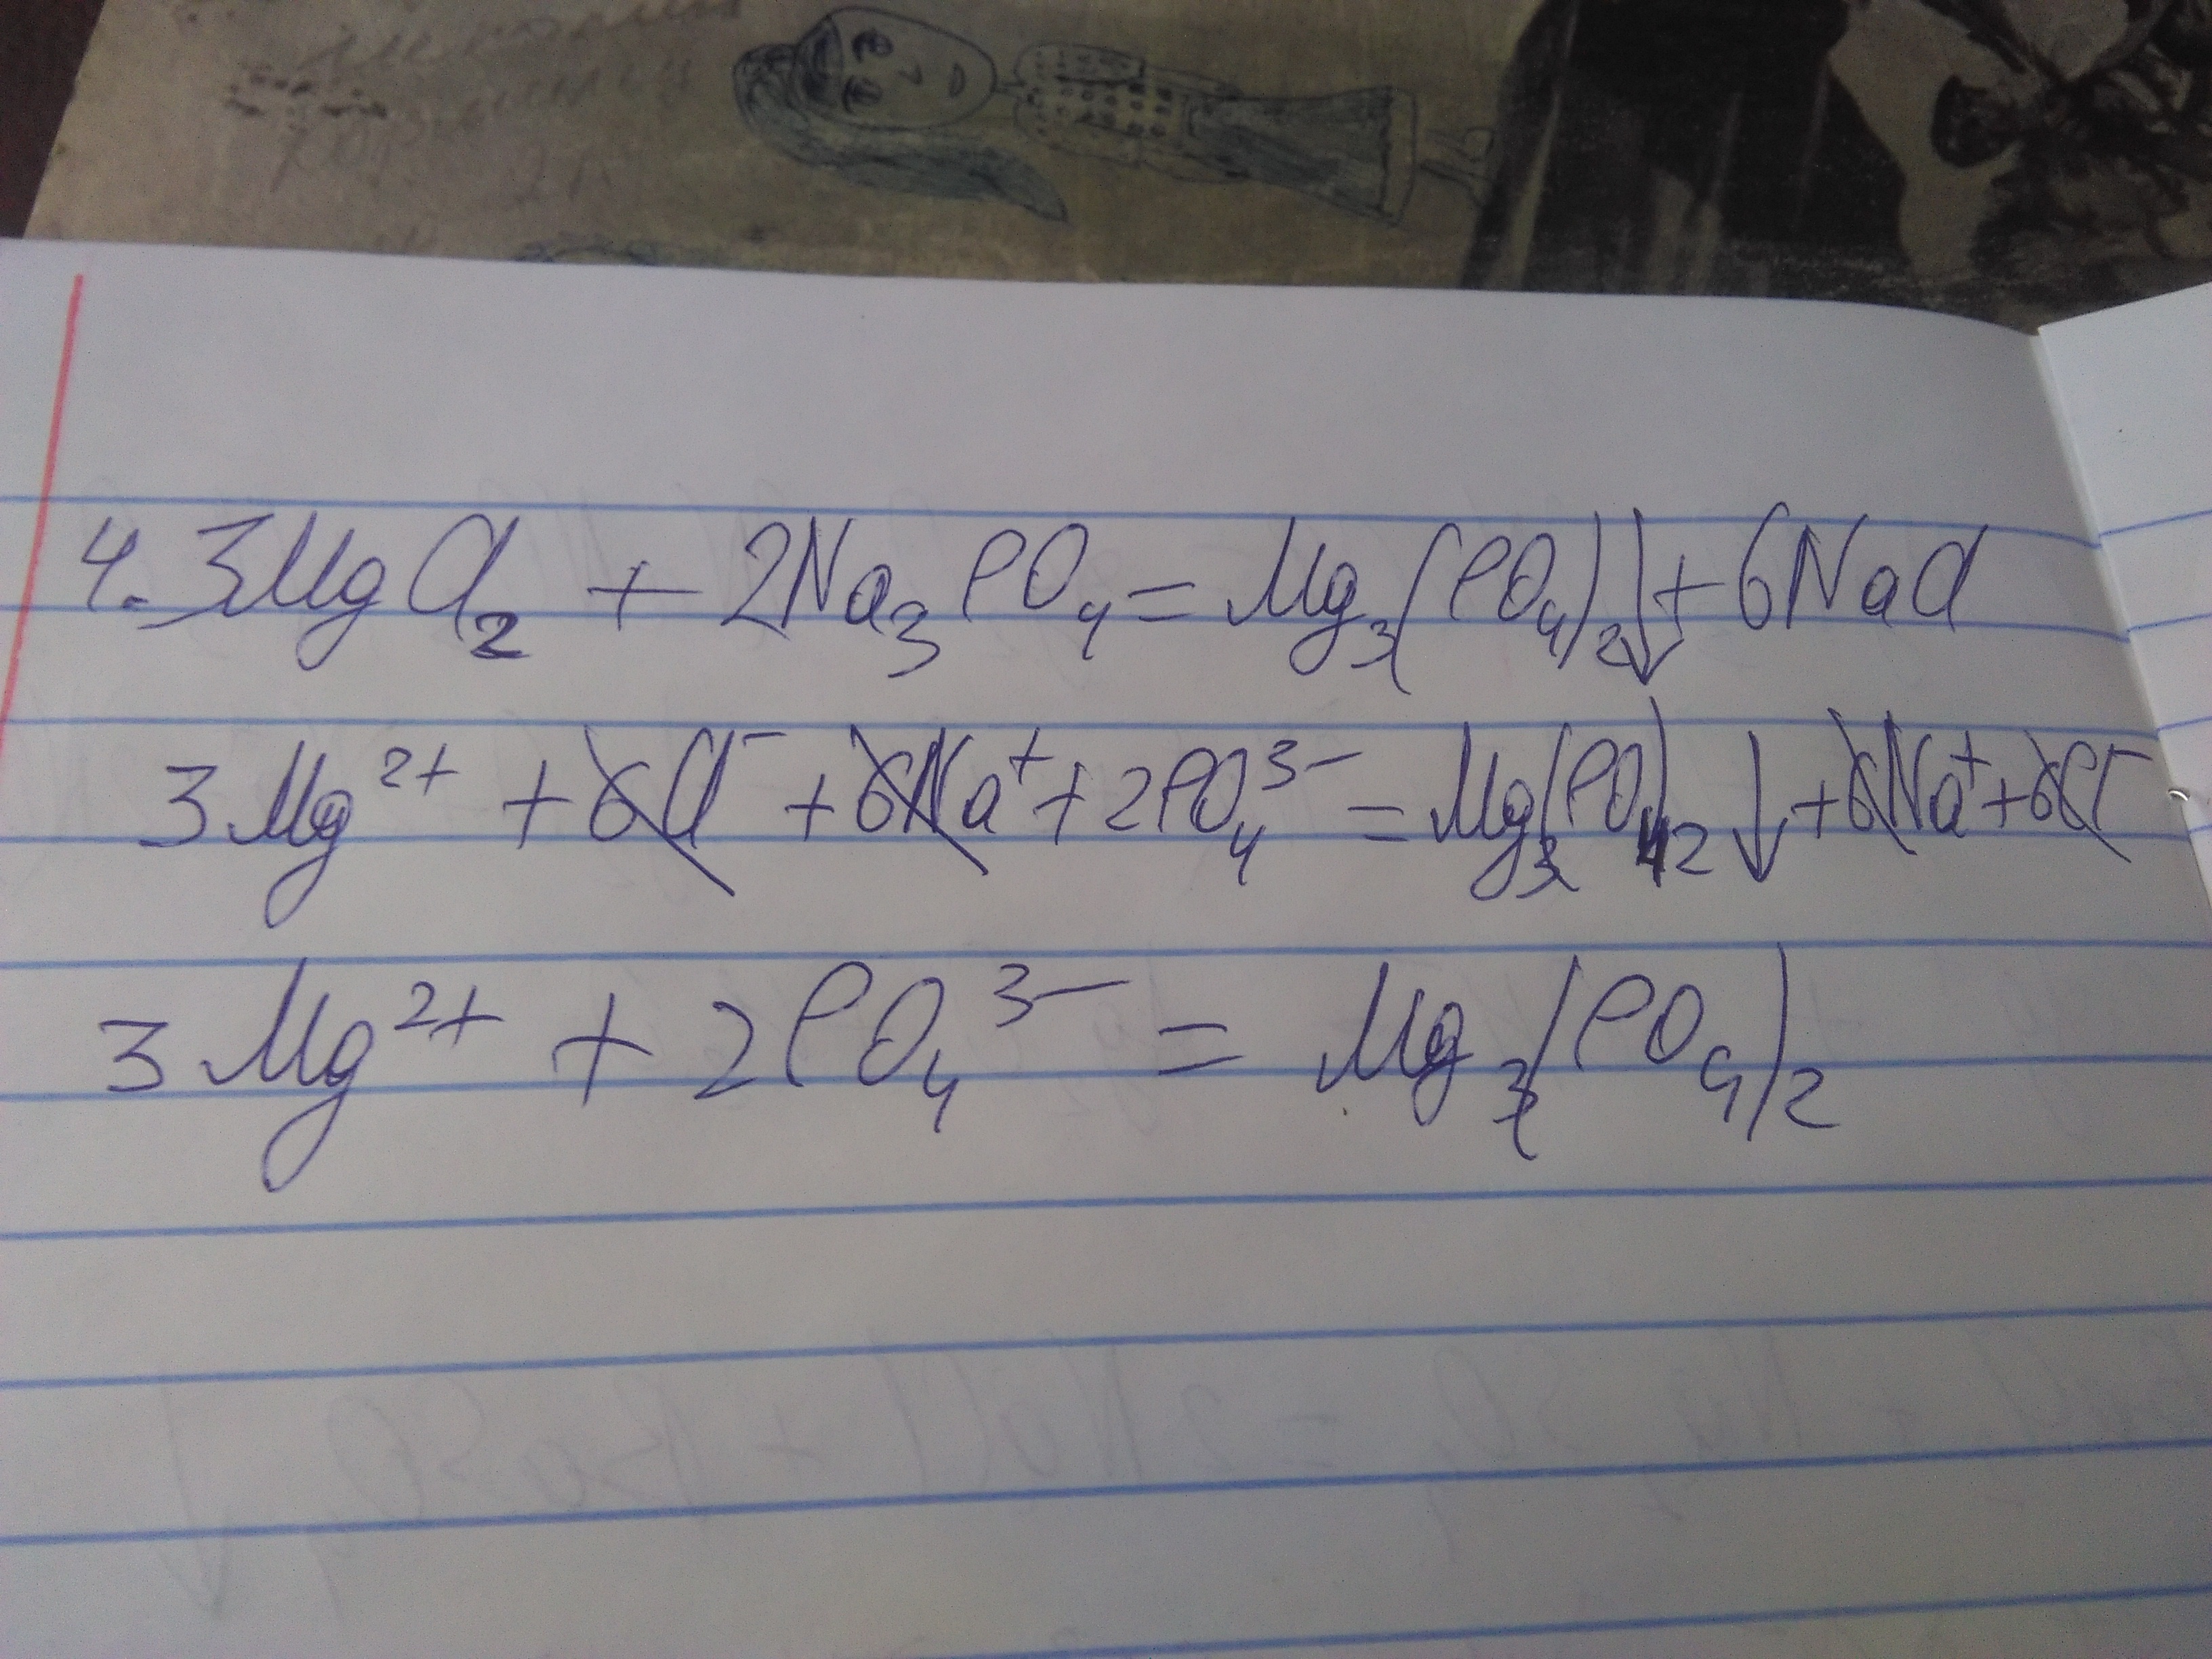 4. 3MgCl₂ + 2Na₃PO₄ = Mg₃(PO₄)₂↓ + 6NaCl
3Mg²⁺ + 6Cl⁻ + 6Na⁺ + 2PO₄³⁻ = Mg₃(PO₄)₂↓ + 6Na⁺ + 6Cl⁻
3Mg²⁺ + 2PO₄³⁻ = Mg₃(PO₄)₂